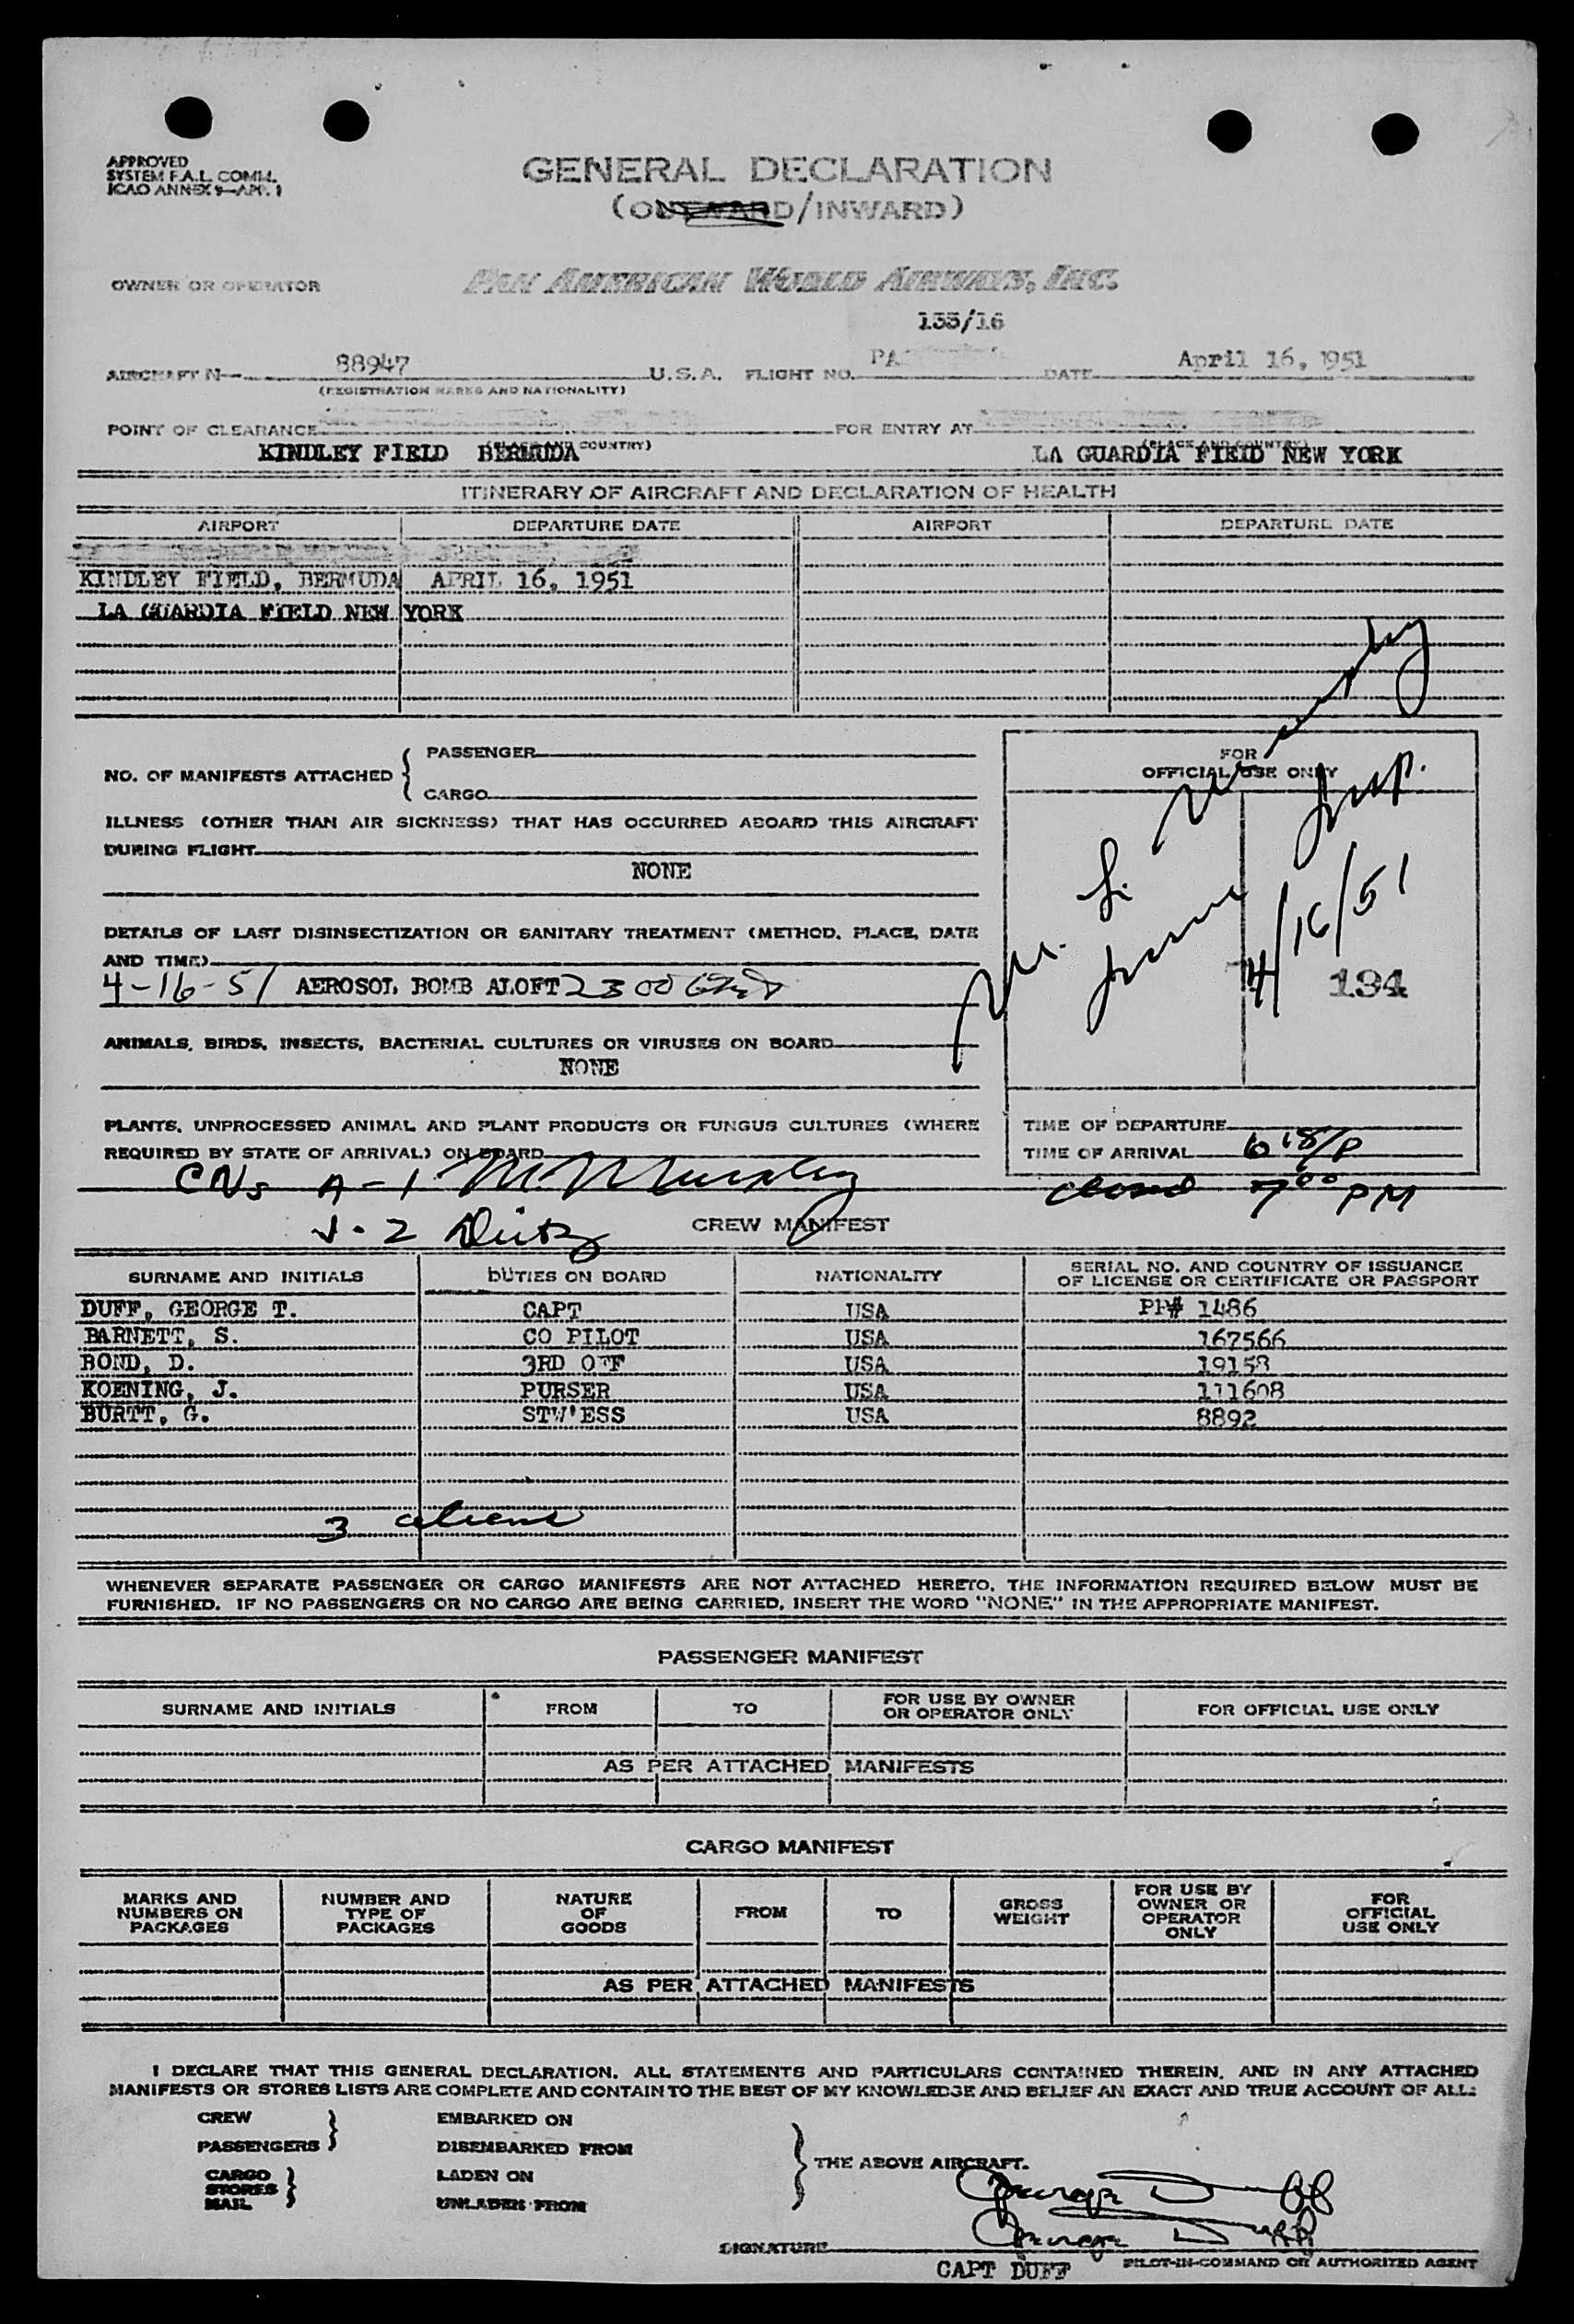 APPROVED
SYSTEM F.A.L. COMM.
ICAO ANNEX 9—APP. 1
GENERAL DECLARATION
(OUTWARD/INWARD)
OWNER OR OPERATOR PAN AMERICAN WORLD AIRWAYS, INC.
133/16
AIRCRAFT N— 88947 U.S.A. FLIGHT NO. PA DATE April 16, 1951
(REGISTRATION MARKS AND NATIONALITY)
POINT OF CLEARANCE FOR ENTRY AT
(PLACE AND COUNTRY) (PLACE AND COUNTRY)
KINDLEY FIELD BERMUDA LA GUARDIA FIELD NEW YORK
ITINERARY OF AIRCRAFT AND DECLARATION OF HEALTH
AIRPORT DEPARTURE DATE AIRPORT DEPARTURE DATE
KINDLEY FIELD, BERMUDA APRIL 16, 1951
LA GUARDIA FIELD NEW YORK
NO. OF MANIFESTS ATTACHED { PASSENGER
CARGO
FOR
OFFICIAL USE ONLY
M. L. Murphy
Insp.
4/16/51
194
ILLNESS (OTHER THAN AIR SICKNESS) THAT HAS OCCURRED ABOARD THIS AIRCRAFT
DURING FLIGHT
NONE
DETAILS OF LAST DISINSECTIZATION OR SANITARY TREATMENT (METHOD, PLACE, DATE
AND TIME)
4-16-51 AEROSOL BOMB ALOFT 2300
ANIMALS, BIRDS, INSECTS, BACTERIAL CULTURES OR VIRUSES ON BOARD
NONE
PLANTS, UNPROCESSED ANIMAL AND PLANT PRODUCTS OR FUNGUS CULTURES (WHERE
REQUIRED BY STATE OF ARRIVAL) ON BOARD
TIME OF DEPARTURE
TIME OF ARRIVAL 6 18/P
closed 7 00 PM
CNs A-1 M. Murphy
CREW MANIFEST
SURNAME AND INITIALS DUTIES ON BOARD NATIONALITY SERIAL NO. AND COUNTRY OF ISSUANCE
OF LICENSE OR CERTIFICATE OR PASSPORT
DUFF, GEORGE T. CAPT USA PP# 1486
BARNETT, S. CO PILOT USA 167566
BOND, D. 3RD OFF USA 19158
KOENING, J. PURSER USA 111608
BURTT, G. STW'ESS USA 8892
3 aliens
WHENEVER SEPARATE PASSENGER OR CARGO MANIFESTS ARE NOT ATTACHED HERETO, THE INFORMATION REQUIRED BELOW MUST BE
FURNISHED. IF NO PASSENGERS OR NO CARGO ARE BEING CARRIED, INSERT THE WORD "NONE" IN THE APPROPRIATE MANIFEST.
PASSENGER MANIFEST
SURNAME AND INITIALS FROM TO FOR USE BY OWNER
OR OPERATOR ONLY FOR OFFICIAL USE ONLY
AS PER ATTACHED MANIFESTS
CARGO MANIFEST
MARKS AND
NUMBERS ON
PACKAGES
NUMBER AND
TYPE OF
PACKAGES
NATURE
OF
GOODS
FROM
TO
GROSS
WEIGHT
FOR USE BY
OWNER OR
OPERATOR
ONLY
FOR
OFFICIAL
USE ONLY
AS PER ATTACHED MANIFESTS
I DECLARE THAT THIS GENERAL DECLARATION, ALL STATEMENTS AND PARTICULARS CONTAINED THEREIN, AND IN ANY ATTACHED
MANIFESTS OR STORES LISTS ARE COMPLETE AND CONTAIN TO THE BEST OF MY KNOWLEDGE AND BELIEF AN EXACT AND TRUE ACCOUNT OF ALL:
CREW EMBARKED ON
PASSENGERS DISEMBARKED FROM
THE ABOVE AIRCRAFT.
CARGO LADEN ON
STORES
MAIL UNLADEN FROM
George Duff
George Duff
SIGNATURE
CAPT DUFF PILOT-IN-COMMAND OR AUTHORIZED AGENT